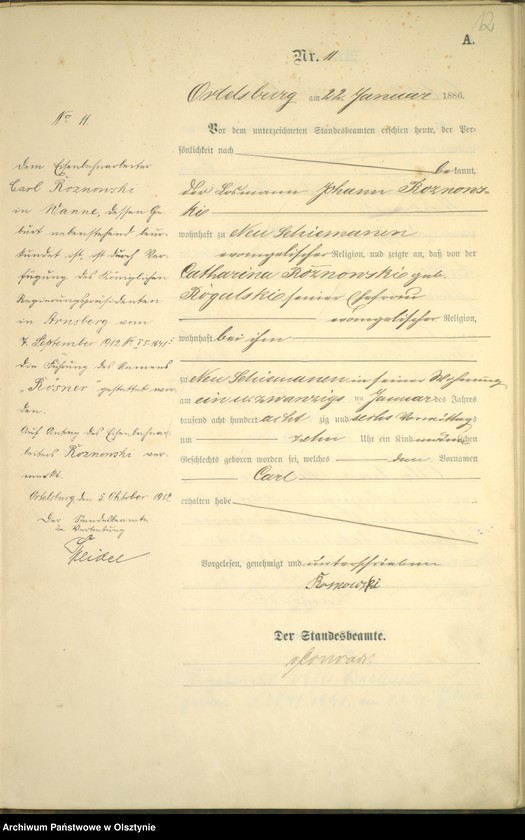 12
A.
Nr. 11
Ortelsburg am 22. Januar 1886.
Vor dem unterzeichneten Standesbeamten erschien heute, der Per-
sönlichkeit nach
be kannt,
der Losmann Johann Roznows-
kie
wohnhaft zu Neu Schiemanen
evangelischer Religion, und zeigte an, daß von der
Catharina Roznowskie geb.
Rogulskie seiner Ehefrau
evangelischer Religion,
wohnhaft bei ihm
zu Neu Schiemanen in seiner Wohnung
am ein u zwanzigs ten Januar des Jahres
tausend acht hundert acht zig und sechs Vormittags
um zehn Uhr ein Kind männlichen
Geschlechts geboren worden sei, welches den Vornamen
Carl
erhalten habe
Vorgelesen, genehmigt und unterschrieben
Roznowski
Der Standesbeamte.
No 11
Dem Eisenbahnarbeiter
Carl Roznowski
in Wanne, dessen Ge-
burt nebenstehend beur-
kundet ist, ist durch Ver-
fügung des Königlichen
Regierungspräsidenten
in Arnsberg vom
7. September 1912
die Führung des Namens
"Rösner" gestattet wor-
den.
Auf Antrag des Eisenbahnar-
beiters Roznowski ver-
merkt.
Ortelsburg den 5. Oktober 1912
Der Standesbeamte
in Vertretung
Archiwum Państwowe w Olsztynie